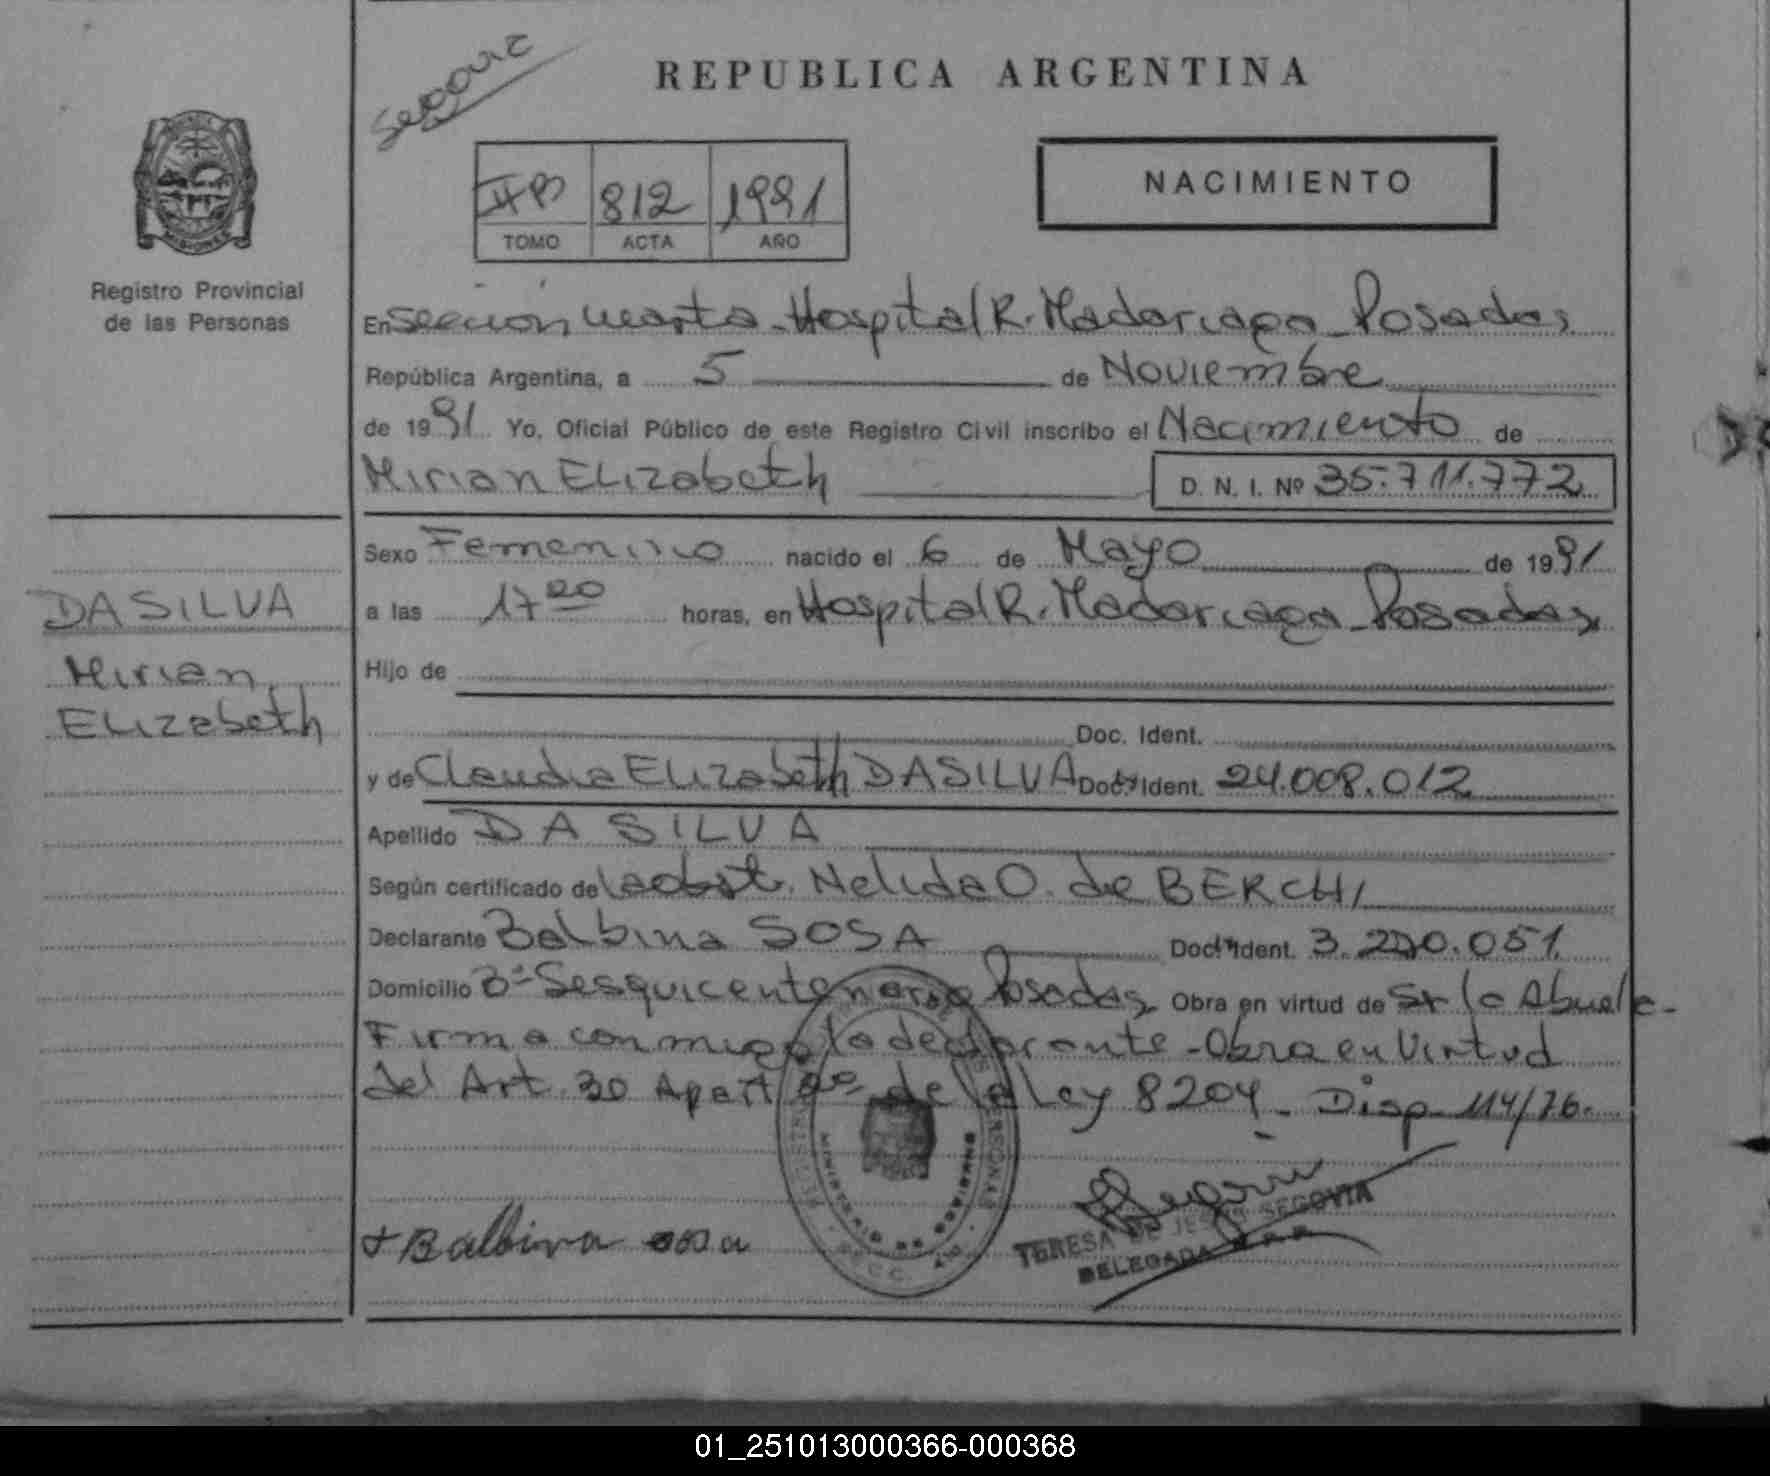 REPUBLICA ARGENTINA
NACIMIENTO
812 1991
TOMO ACTA AÑO
MISIONES
Registro Provincial
de las Personas
En Sección Cuarta - Hospital R. Madariaga - Posadas
República Argentina, a 5 de Noviembre
de 1991 Yo, Oficial Público de este Registro Civil inscribo el Nacimiento de
Mirian ELizabeth D. N. I. Nº 35.711.772
Sexo Femenino nacido el 6 de Mayo de 1991
a las 17 horas, en Hospital R. Madariaga - Posadas
Hijo de
Doc. Ident.
y de Claudia ELizabeth DA SILVA Doc. Ident. 24.008.012
Apellido DA SILVA
Según certificado de la obst. Nelida O. de BERCHI
Declarante Balbina SOSA Doc. Ident. 3.200.051
Domicilio Bº Sesquicentenario Posadas Obra en virtud de Ser la Abuela -
Firma conmigo la declarante - Obra en Virtud
del Art. 30 Apart 2º de la Ley 8204 - Disp. 114/76.
DA SILVA
Mirian
ELizabeth
Balbina sosa
MINISTERIO DE GOBIERNO
TERESA DE JESUS SEGOVIA
DELEGADA R. P. P.
01_251013000366-000368